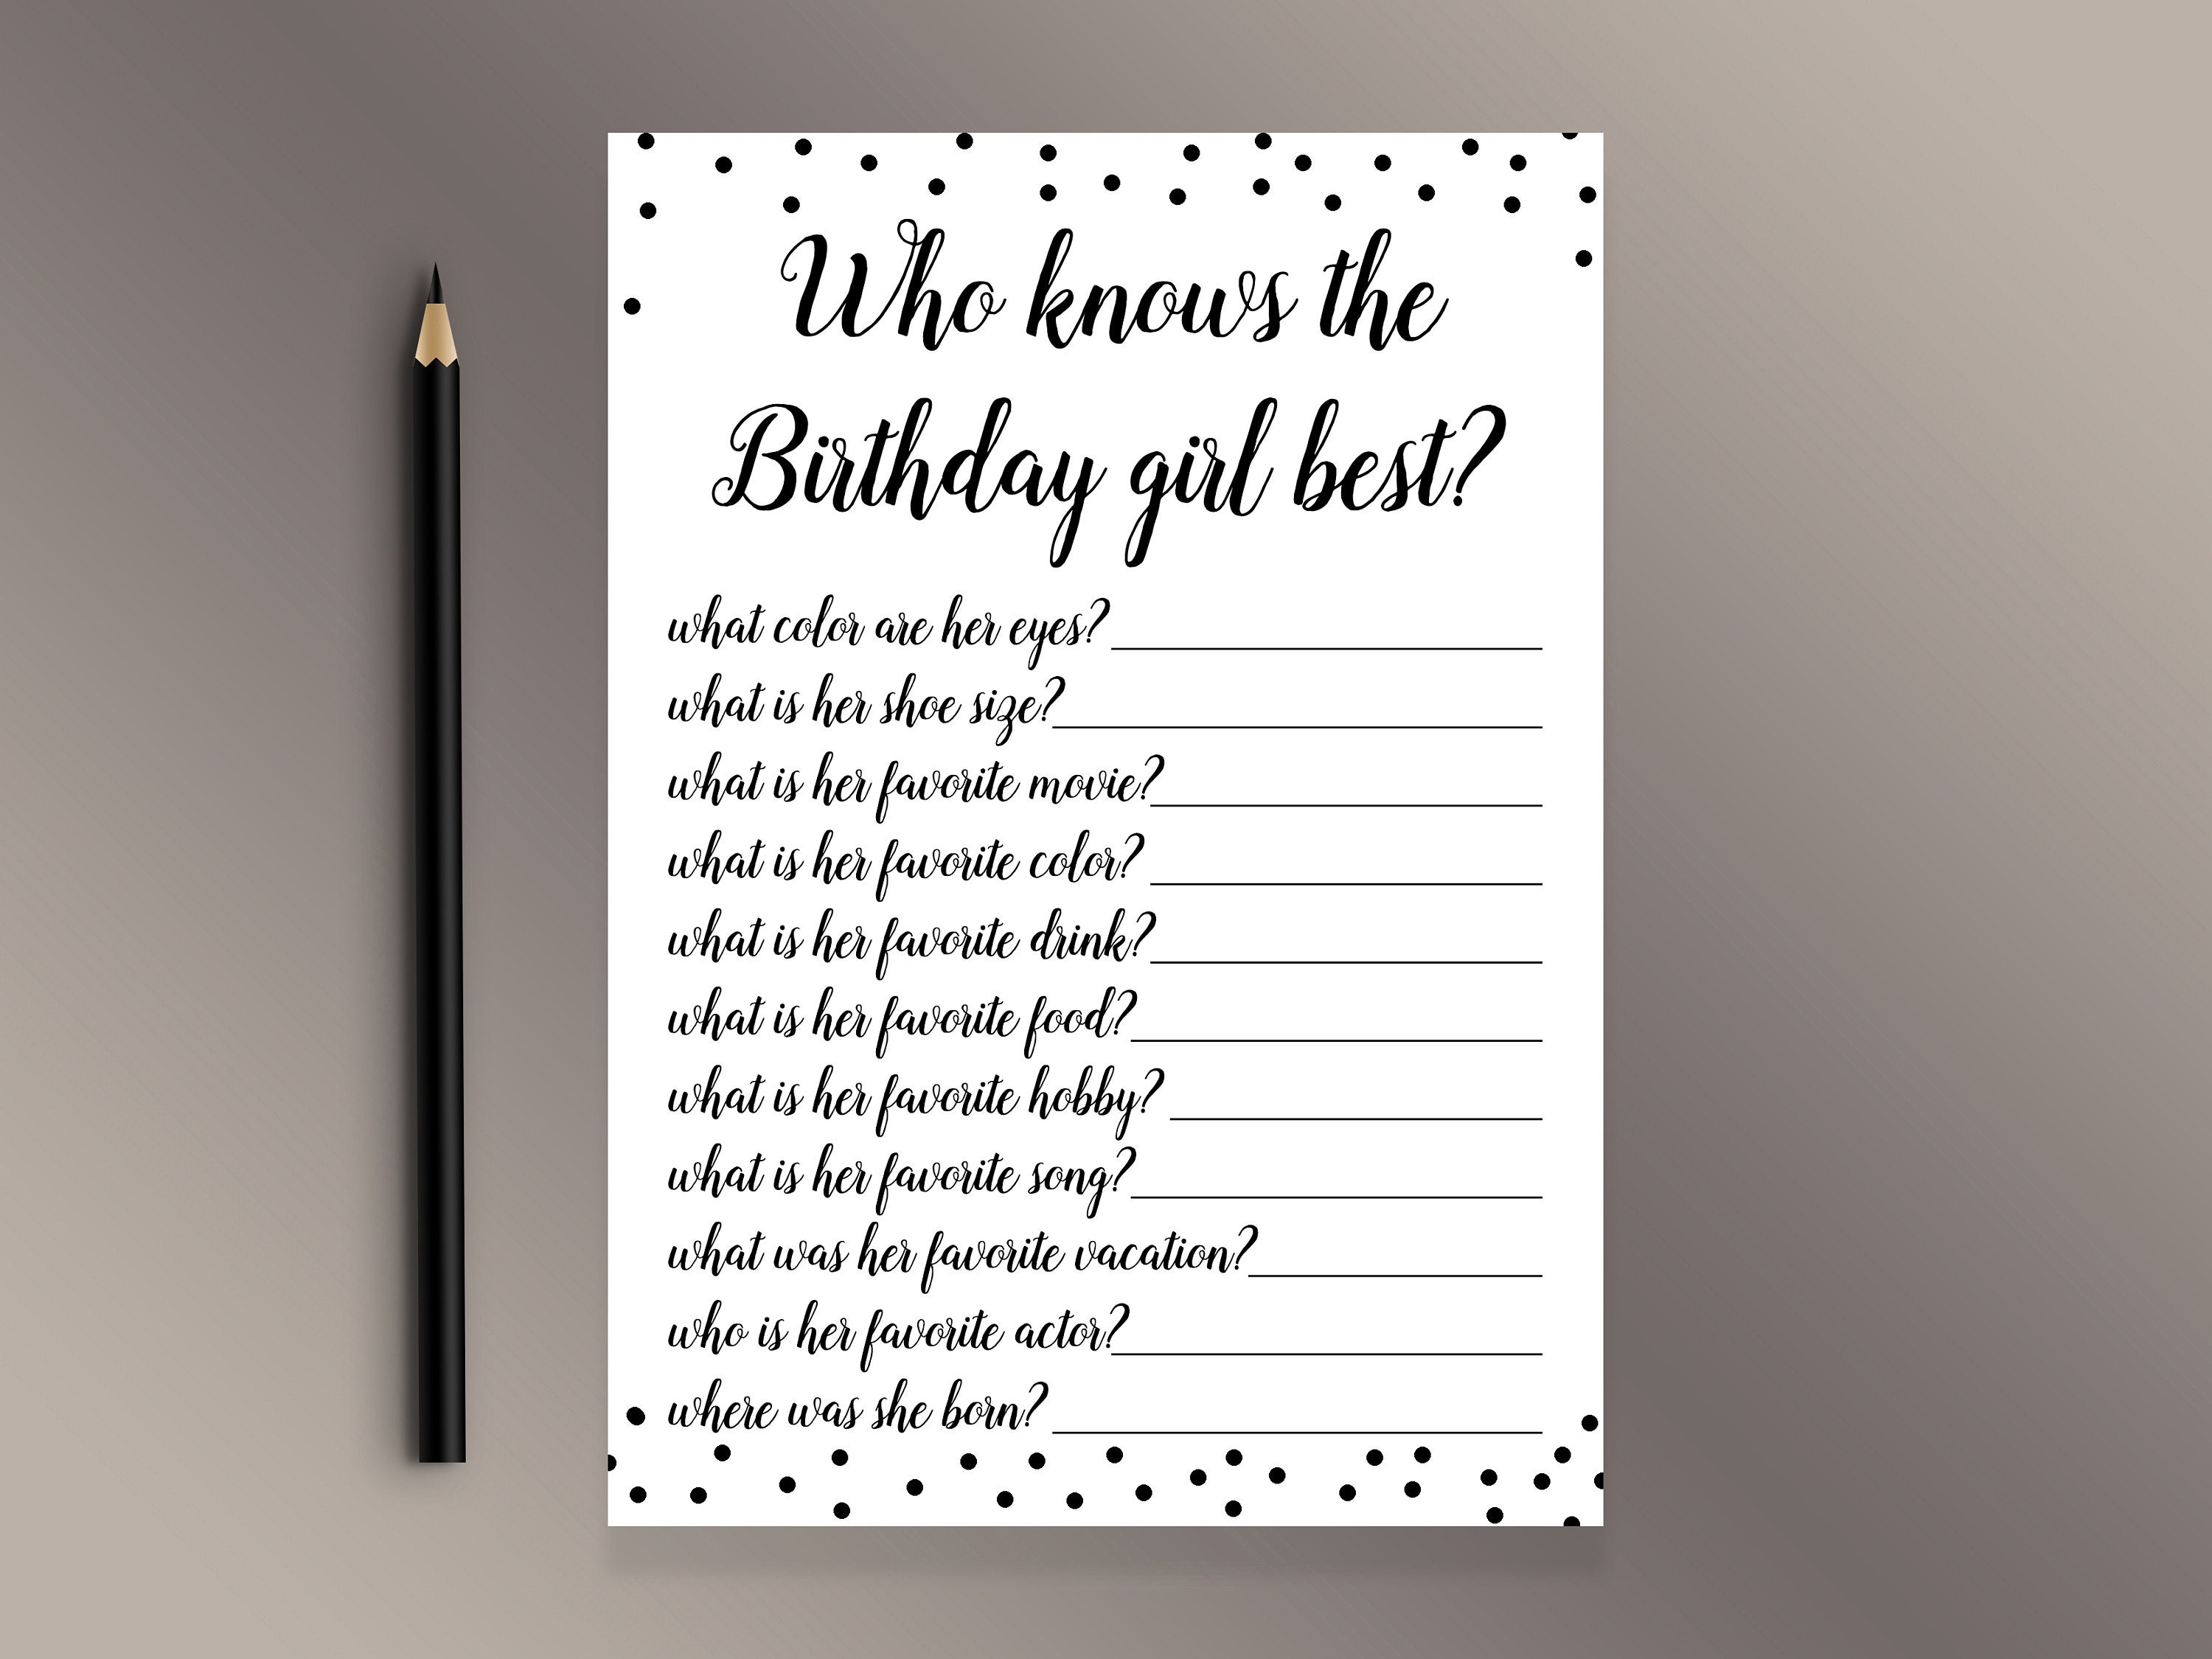 Who knows the
Birthday girl best?
what color are her eyes?
what is her shoe size?
what is her favorite movie?
what is her favorite color?
what is her favorite drink?
what is her favorite food?
what is her favorite hobby?
what is her favorite song?
what was her favorite vacation?
who is her favorite actor?
where was she born?